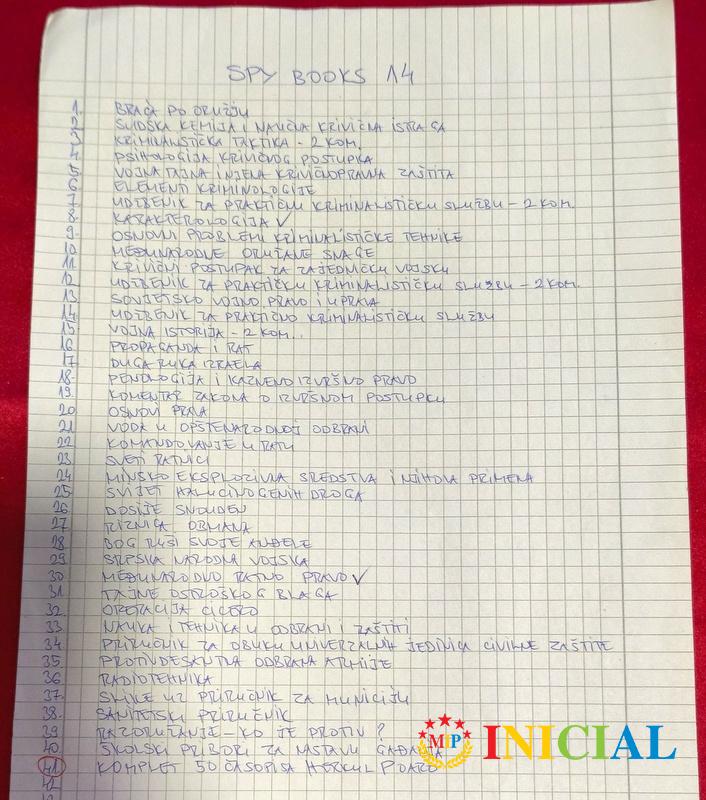 SPY BOOKS 14
1. BRAĆA PO ORUŽJU
2 SUDSKA KEMIJA I NAUČNA KRIVIČNA ISTRAGA
3 KRIMINALISTIČKA TAKTIKA - 2 KOM.
4. PSIHOLOGIJA KRIVIČNOG POSTUPKA
5. VOJNA TAJNA I NJENA KRIVIČNOPRAVNA ZAŠTITA
6 ELEMENTI KRIMINOLOGIJE
7. UDŽBENIK ZA PRAKTIČNU KRIMINALISTIČKU SLUŽBU - 2 KOM.
8. KARAKTEROLOGIJA ✓
9. OSNOVNI PROBLEMI KRIMINALISTIČKE TEHNIKE
10 MEĐUNARODNE ORUŽANE SNAGE
11 KRIVIČNI POSTUPAK ZA ZAJEDNIČKU VOJSKU
12 UDŽBENIK ZA PRAKTIČNU KRIMINALISTIČKU SLUŽBU - 2 KOM.
13 SOVJETSKO VOJNO PRAVO I UPRAVA
14 UDŽBENIK ZA PRAKTIČNO KRIMINALISTIČKU SLUŽBU
15. VOJNA ISTORIJA - 2 KOM..
16. PROPAGANDA I RAT
17 DUGA RUKA IZRAELA
18. PENOLOGIJA I KAZNENO IZVRŠNO PRAVO
19. KOMENTAR ZAKONA O IZVRŠNOM POSTUPKU
20 OSNOVI PRAVA
21 VODA U OPŠTENARODNOJ ODBRANI
22 KOMANDOVANJE U RATU
23 SVETI RATNICI
24 MINSKO EKSPLOZIVNA SREDSTVA I NJIHOVA PRIMENA
25 SVIJET HALUCINOGENIH DROGA
26 DOSIJE SNOUDEN
27 RIZNICA OBMANA
28 BOG RUŠI SVOJE ANĐELE
29 SRPSKA NARODNA VOJSKA
30 MEĐUNARODNO RATNO PRAVO ✓
31. TAJNE OSTROŠKOG BLAGA
32. OPERACIJA CICERO
33 NAUKA I TEHNIKA U ODBRANI I ZAŠTITI
34 PRIRUČNIK ZA OBUKU UNIVERZALNIH JEDINICA CIVILNE ZAŠTITE
35 PROTIVDESANTNA ODBRANA ARMIJE
36 RADIOTEHNIKA
37. SLIKE UZ PRIRUČNIK ZA MUNICIJU
38. SANITETSKI PRIRUČNIK
39 RAZORUŽANJE - KO JE PROTIV?
40. ŠKOLSKI PRIBORI ZA NASTAVU GAĐANJA
41 KOMPLET 50 ČASOPISA HERKUL POARO
42
MIP INICIAL